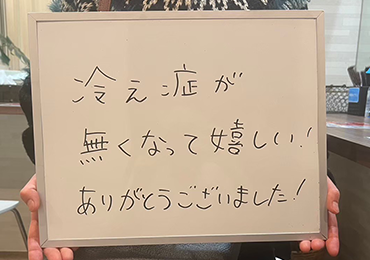 冷え症が
無くなって嬉しい!
ありがとうございました!